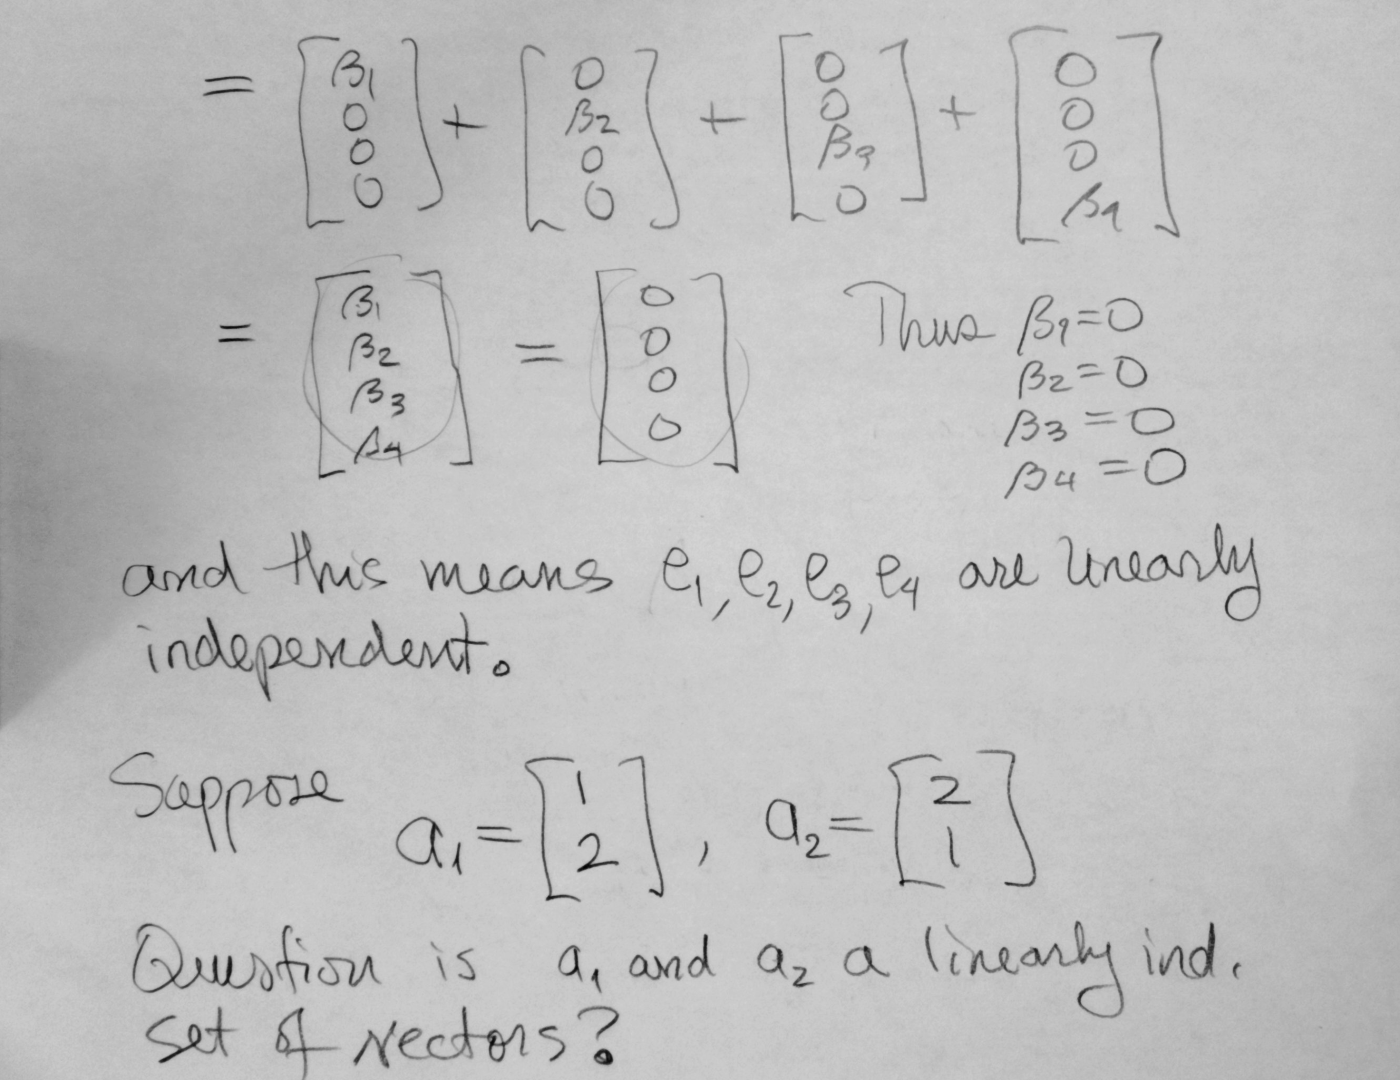 = [β₁ 0 0 0] + [0 β₂ 0 0] + [0 0 β₃ 0] + [0 0 0 β₄]
= [β₁ β₂ β₃ β₄] = [0 0 0 0] Thus β₁=0
β₂=0
β₃=0
β₄=0
and this means e₁, e₂, e₃, e₄ are linearly
independent.
Suppose a₁=[1 2], a₂=[2 1]
Question is a₁ and a₂ a linearly ind.
set of vectors?